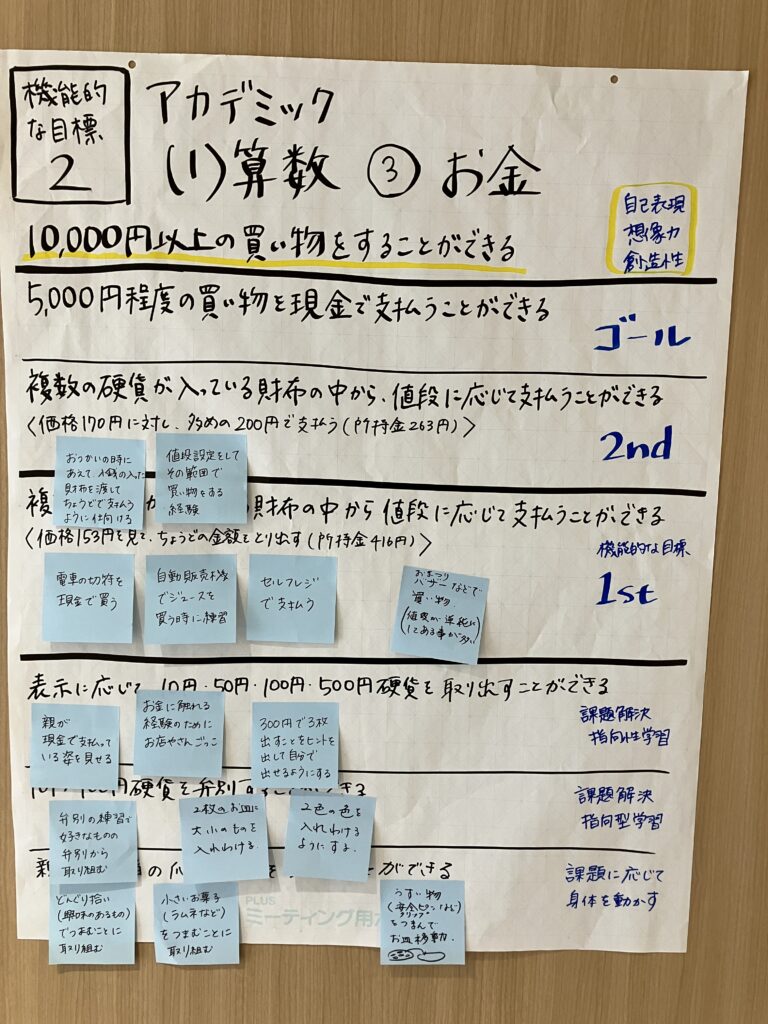 機能的
な目標
2
アカデミック
(1)算数 ③ お金
10,000円以上の買い物をすることができる
自己表現
想像力
創造性
5,000円程度の買い物を現金で支払うことができる
ゴール
複数の硬貨が入っている財布の中から、値段に応じて支払うことができる
〈価格170円に対し、多めの200円で支払う(所持金263円)〉
2nd
おつかいの時に
あえて小銭の入った
財布を渡して
ちょうどで支払う
ように仕向ける
値段設定をして
その範囲で
買い物をする
経験
複 が 財布の中から値段に応じて支払うことができる
〈価格153円を見て、ちょうどの金額をとり出す(所持金416円)〉
機能的な目標
1st
電車の切符を
現金で買う
自動販売機
でジュースを
買う時に練習
セルフレジ
で支払う
おまつり
バザーなどで
買い物
(値段が単純に
してある事が多い)
表示に応じて、10円・50円・100円・500円硬貨を取り出すことができる
課題解決
指向性学習
親が
現金で支払って
いる姿を見せる
お金に触れる
経験のために
お店やさんごっこ
300円で3枚
出すことをヒントを
出して自分で
出せるようにする
硬貨を弁別す きる
課題解決
指向型学習
弁別の練習で
好きなものの
弁別から
取り組む
2枚のお皿に
大小のものを
入れわける
2色の色を
入れわける
ようにする。
親 の ができる
課題に応じて
身体を動かす
どんぐり拾い
(興味のあるもの)
でつまむことに
取り組む
小さいお菓子
(ラムネなど)
をつまむことに
取り組む
うすい物
(安全ピンなど)
クリップ
をつまんで
お皿移動.
PLUS
ミーティング用